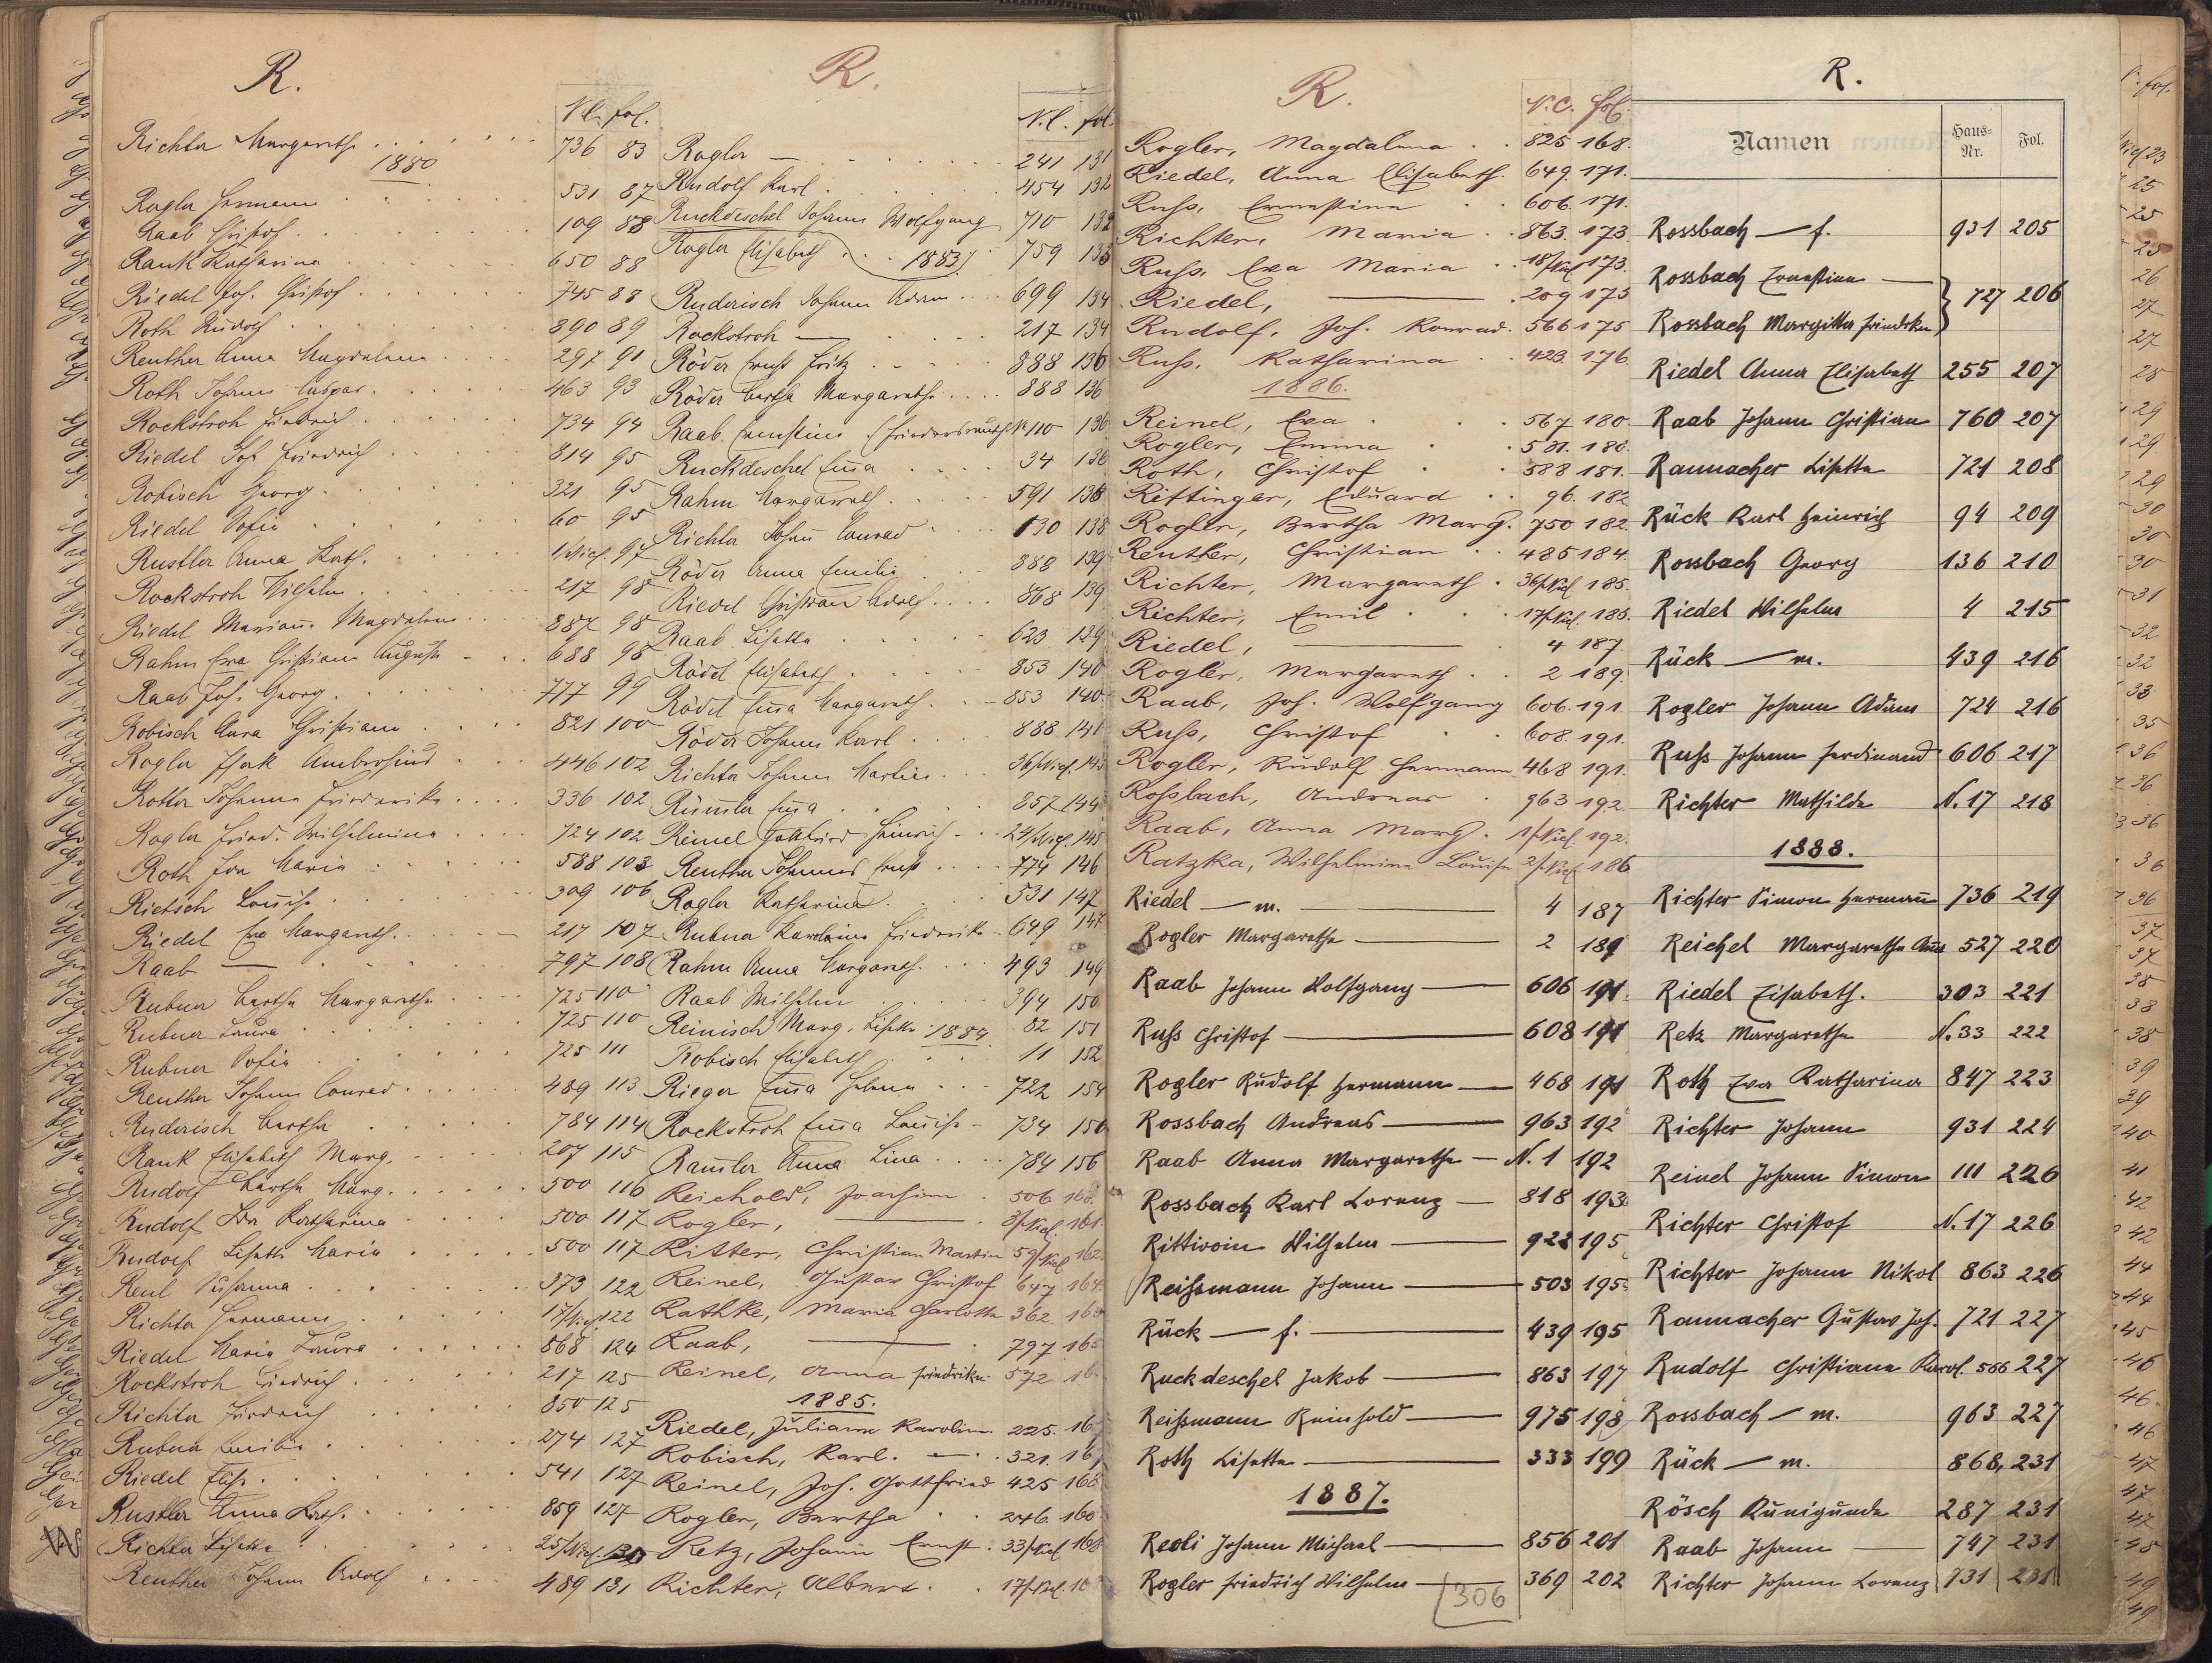 R.
N.C. fol.
Richter Margaretha 736 83
1880
Rogler Hermann 531 87
Raab Christof 109 88
Rank Katharina 650 88
Riedel Joh. Christof 745 88
Roth Rudolf 890 89
Reuther Anna Magdalena 297 91
Roth Johann Caspar 463 93
Rockstroh Friedrich 734 94
Riedel Joh. Friedrich 814 95
Robisch Georg 321 95
Riedel Sofie 60 95
Rustler Anna Kath. 1/Nicl. 97
Rockstroh Wilhelm 217 98
Riedel Magdalena 887 98
Rahm Eva Christiana Auguste 688 98
Raab Joh. Georg 777 99
Robisch Anna Christiana 821 100
Rogler Isak Ambrosius 446 102
Rotter Johanna Friederike 336 102
Rogler Fried. Wilhelmina 724 102
Roth Ida Maria 588 103
Rietsch Louise 309 106
Riedel Eva Margareth. 217 107
Raab — 797 108
Rubner Bertha Margaretha 725 110
Rubner Laura 725 110
Rubner Sofie 725 111
Reuther Johann Conrad 489 113
Ruderisch Bertha 784 114
Rank Elisabeth Marg. 207 115
Rudolf Bertha Marg. 500 116
Rudolf Ida Katharina 500 117
Rudolf Lisette Maria 500 117
Reul Susanna 373 122
Richter Hermann 17/Nicl. 122
Riedel Maria Laura 868 124
Rockstroh Friedrich 217 125
Richter Friedrich 850 125
Rubner Emilie 274 127
Riedel Elise 541 127
Rustler Anna Kath. 859 127
Richter Lisette 25/Nicl.
Reuther Johann Adolf 489 131
R.
N.C. fol.
Rogler — 241 131
Rudolf Karl 454 132
Ruckdeschel Johann Wolfgang 710 132
Rogler Elisabeth 1883 759 133
Ruderisch Johann Adam 699 134
Rockstroh — 217 134
Röder Ernst Fritz 888 136
Röder Bertha Margaretha 888 136
Raab Ernestine (Friedersreuth) N 110 136
Ruckdeschel Emma 34 136
Rahm Margareth 591 138
Richter Johann Conrad 130 138
Röder Anna Emilie 888 139
Riedel Christian Adolf 868 139
Raab Lisette 623 139
Rödel Elisabeth 853 140
Rödel Emma Margareth. 853 140
Röder Johann Karl 888 141
Richter Johann 36/Nicl. 143
Rümmler Emma 857 144
Reinel Gottfried Heinrich 24/Nicl. 145
Reuther Johannes Ernst 774 146
Rogler Katharina 531 147
Rubner Karolina Friederike 649 147
Rahm Anna Margareth. 493 149
Raab Wilhelm 394 150
Reinisch Marg. Lisette 1884 82 151
Robisch Elisabeth 11 152
Rieger Emma Helena 722 154
Rockstroh Emma Louise 734 156
Ramler Anna Lina 784 156
Reichold, Joachim 506 160
Rogler, — 3/Nicl. 161
Ritter, Christian Martin 59/Nicl. 162
Reinel, Gustav Christof 647 164
Rathke, Maria Charlotte 362
Raab, — 797 165
Reinel, Anna Friedrike 572
1885.
Riedel, Juliane Karoline 225.
Robisch, Karl. 321.
Reinel, Joh. Gottfried 425 168
Rogler, Bertha 246. 160
Retz, Johann Ernst 33/Nicl. 168
Richter, Albert 17/Nicl.
R.
N.C. fol.
Rogler, Magdalena 825 168.
Riedel, Anna Elisabeth. 649. 171.
Russ, Ernestine 606. 171.
Richter, Maria 863. 173.
Russ, Eva Maria 18/Nicl. 173.
Riedel, — 209 173
Rudolf, Joh. Konrad. 566 175
Russ, Katharina 423. 176
1886.
Reinel, Eva 567 180.
Rogler, Emma 581. 180.
Roth, Christof 588 181.
Rittinger, Eduard 96. 182
Rogler, Bertha Marg. 750 182.
Reuther, Christian 485 184.
Richter, Margareth 36/Nicl. 185.
Richter, Emil 17/Nicl. 186.
Riedel, — 4 187
Rogler, Margareth 2 189.
Raab, Joh. Wolfgang 606. 191.
Russ, Christof 608. 191.
Rogler, Rudolf Hermann 468 191.
Rossbach, Andreas 963 192.
Raab, Anna Marg. 1/Nicl. 192.
Ratzka, Wilhelmine Louise 2/Nicl. 186
Riedel — m. 4 187
Rogler Margaretha 2 189
Raab Johann Wolfgang 606 191.
Russ Christof 608 191
Rogler Rudolf Hermann 468 191
Rossbach Andreas 963 192
Raab Anna Margaretha N. 1 192
Rossbach Karl Lorenz 818 193
Rittiwoin Wilhelm 922 195
Reissmann Johann 503 195
Rück — f. 439 195
Ruckdeschel Jakob 863 197
Reissmann Reinhold 975 198
Roth Lisette 333 199
1887.
Reoli Johann Michael 856 201
Rogler Friedrich Wilhelm 369 202
306
R.
Namen Haus-Nr. Fol.
Rossbach — f. 931 205
Rossbach Ernestine —
Rossbach Margitta Friedrike } 727 206
Riedel Anna Elisabeth 255 207
Raab Johann Christian 760 207
Raumacher Lisette 721 208
Rück Karl Heinrich 94 209
Rossbach Georg 136 210
Riedel Wilhelm 4 215
Rück — m. 439 216
Rogler Johann Adam 724 216
Russ Johann Ferdinand 606 217
Richter Mathilde N. 17 218
1888.
Richter Simon Hermann 736 219
Reichel Margaretha Anna 527 220
Riedel Elisabeth. 303 221
Retz Margaretha N. 33 222
Roth Eva Katharina 847 223
Richter Johann 931 224
Reinel Johann Simon 111 226
Richter Christof N. 17 226
Richter Johann Nikol 863 226
Raumacher Gustav Joh. 721 227
Rudolf Christiana Karol. 566 227
Rossbach — m. 963 227
Rück — m. 868, 231
Rösch Kunigunde 287 231
Raab Johann — 747 231
Richter Johann Lorenz 731 231